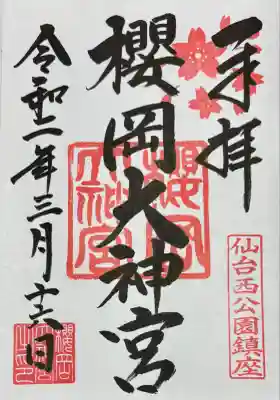 奉拝
仙台西公園鎮座
櫻岡大神宮
櫻岡
大神宮
令和二年三月十六日